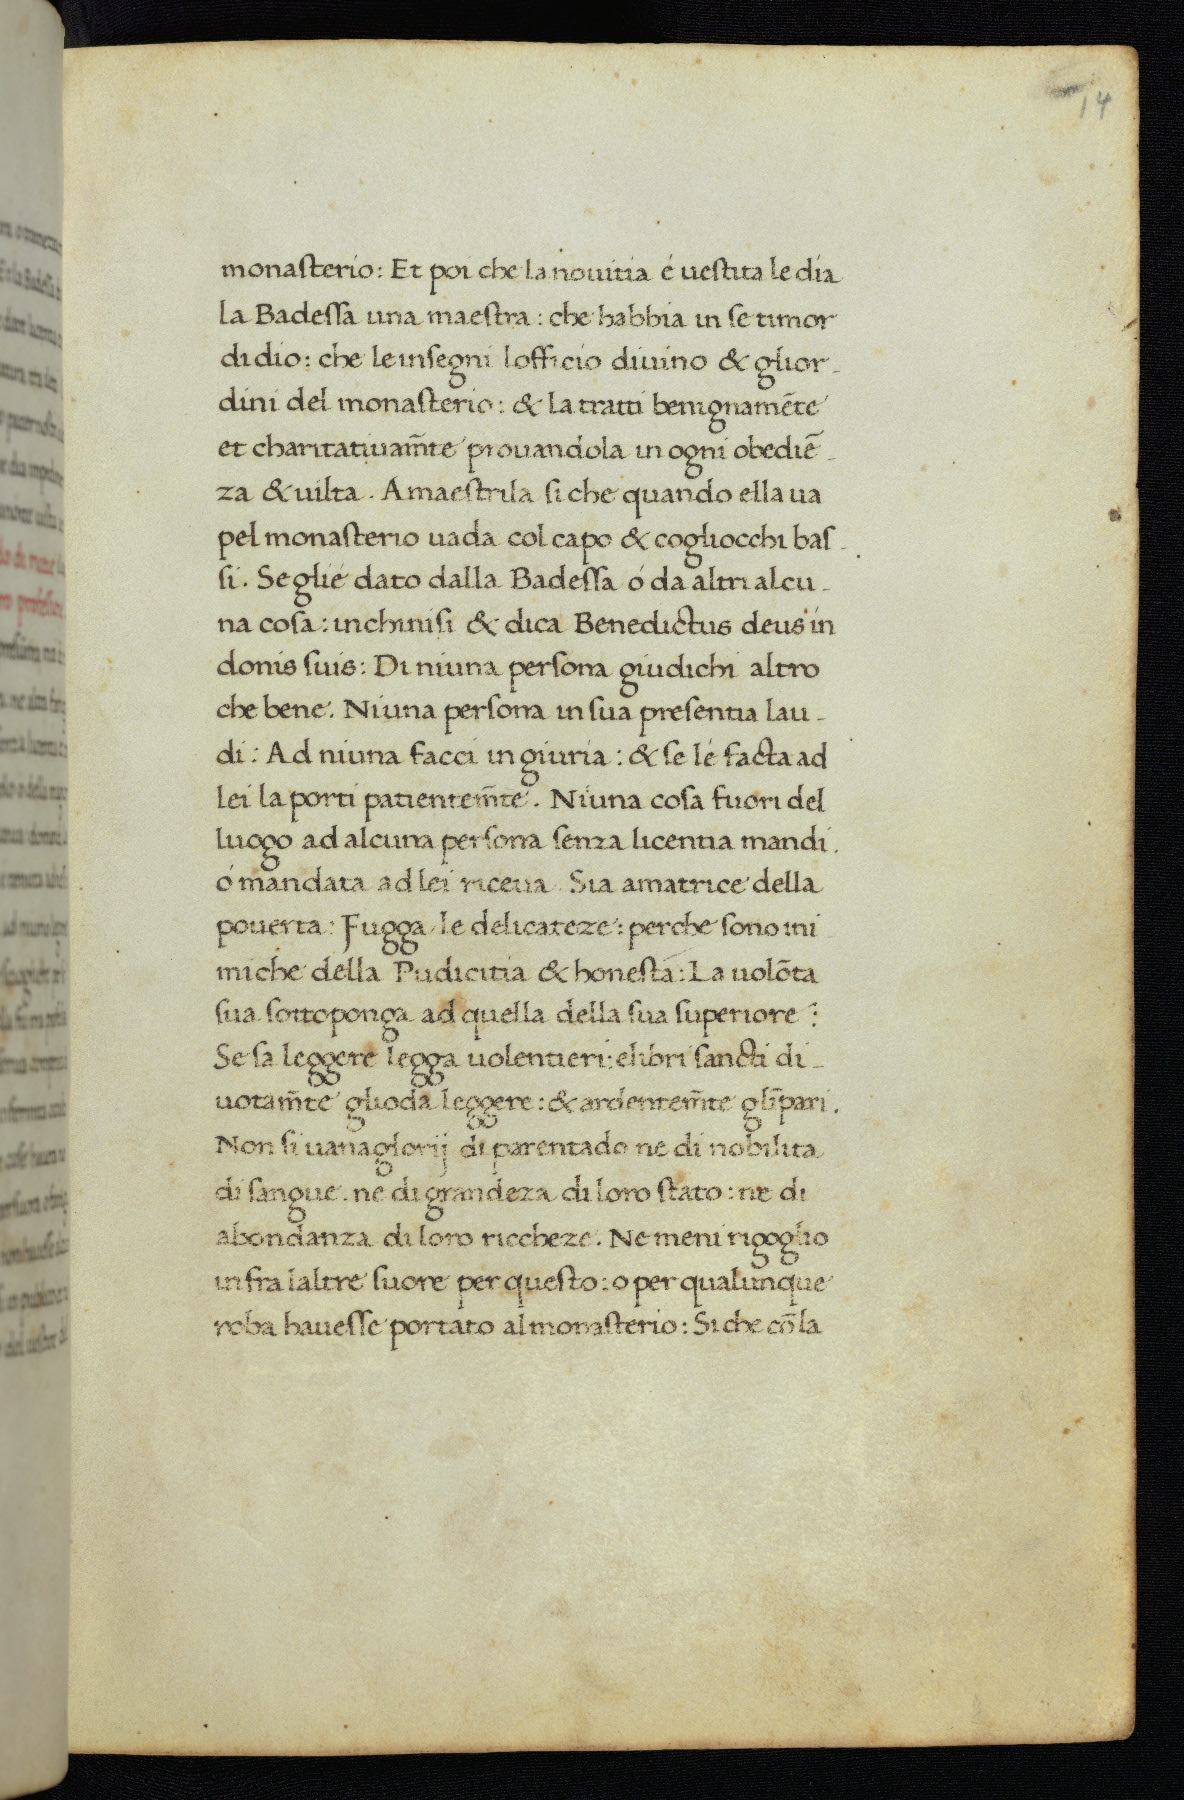 14
monasterio: Et poi che la nouitia é uestita le dia
la Badessa una maestra: che habbia in se timor
di dio: che le insegni lofficio diuino & gli or-
dini del monasterio: & la tratti benignamẽte
et charitatiuam̃te prouandola in ogni obediẽ-
za & uilta. Amaestrila si che quando ella ua
pel monasterio uada col capo & cogliocchi bas-
si. Se glié dato dalla Badessa ó da altri alcu-
na cosa: inchinisi & dica Benedictus deus in
donis suis: Di niuna persona giudichi altro
che bene. Niuna persona in sua presentia lau-
di: Ad niuna facci ingiuria: & se lé facta ad
lei la porti patientem̃te. Niuna cosa fuori del
luogo ad alcuna persona senza licentia mandi.
ó mandata ad lei riceua. Sia amatrice della
pouerta: Fugga le delicateze: perche sono ini
miche della Pudicitia & honestá: La uolõta
sua sottoponga ad quella della sua superiore:
Se sa leggere legga uolentieri: elibri sancti di-
uotam̃te glioda leggere: & ardentem̃te gl'ĩpari.
Non si uanaglorij di parentado ne di nobilita
di sangue. ne di grandeza di loro stato: ne di
abondanza di loro riccheze. Ne meni rigoglio
infra laltre suore per questo: o per qualunque
roba hauesse portato al monasterio: Si che cõ la